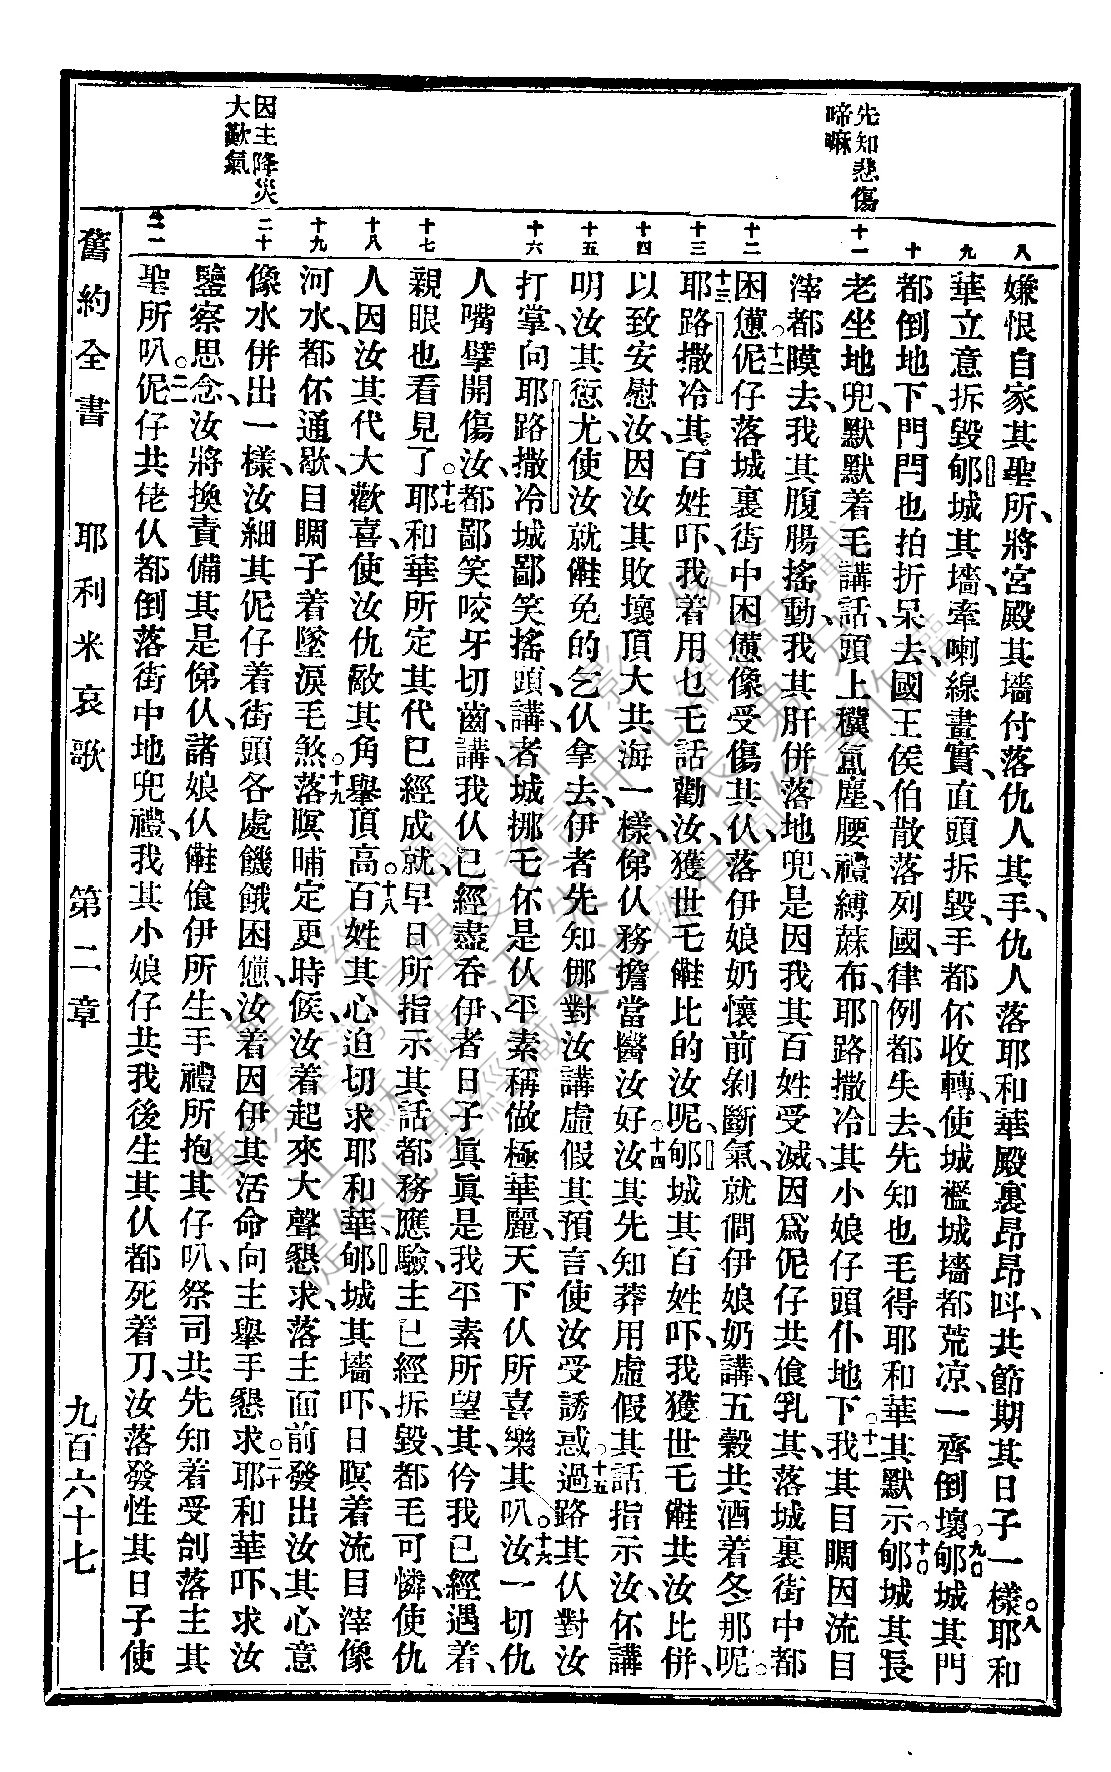 先知悲傷
啼嘛
因主降災
大歎氣
八
九
十
十一
十二
十三
十四
十五
十六
十七
十八
十九
二十
嫌恨自家其聖所、將宮殿其墻付落仇人其手、仇人落耶和華殿裏昂昂呌、共節期其日子一樣。八耶和
華立意拆毀郇城其墻、牽喇線畫實、直頭拆毀、手都伓收轉、使城襤城墻都荒凉、一齊倒壞。九郇城其門
都倒地下、門閂也拍折呆去、國王侯伯散落列國、律例都失去、先知也毛得耶和華其默示。十郇城其長
老坐地兜、默默着毛講話、頭上䊲氳塵、腰禮縛蔴布、耶路撒冷其小娘仔頭仆地下。十一我其目瞯因流目
滓都瞙去、我其腹腸搖動、我其肝併落地兜、是因我其百姓受滅、因爲伲仔共飡乳其、落城裏街中都
困憊。十二伲仔落城裏街中困憊、像受傷其仈、落伊娘奶懷前剝斷氣、就問伊娘奶講、五穀共酒着冬那呢。
十三耶路撒冷其百姓吓、我着用乜乇話勸汝、獲世乇罐比的汝呢、郇城其百姓吓、我獲世乇罐共汝比併、
以致安慰汝、因汝其敗壞頂大共海一樣、俤仈務擔當醫汝好。十四汝其先知莽用虛假其話指示汝、伓講
明汝其愆尤、使汝就罐免的乞仈拿去、伊者先知㑚對汝講虛假其預言、使汝受誘惑。十五過路其仈對汝
打掌、向耶路撒冷城鄙笑搖頭、講、者城挪乇伓是仈平素稱做極華麗、天下仈所喜樂其叭。十六汝一切仇
人嘴擘開傷汝、都鄙笑咬牙切齒、講、我仈已經盡吞伊、者日子眞眞是我平素所望其、伶我已經遇着、
親眼也看見了。十七耶和華所定其代已經成就、早日所指示其話都務應驗、主已經拆毀、都毛可憐、使仇
人因汝其代大歡喜、使汝仇敵其角舉頂高。十八百姓其心迫切求耶和華、郇城其墻吓、日暝着流目滓像
河水、都伓通歇、目瞯子着墜淚毛煞。十九落暝晡定更時候、汝着起來大聲懇求、落主面前發出汝其心意
像水併出一樣、汝細其伲仔着街頭各處饑餓困憊、汝着因伊其活命向主舉手懇求。二十耶和華吓、求汝
鑒察思念、汝將換責備其是俤仈、諸娘仈罐飡伊所生、手禮所抱其仔叭、祭司共先知着受刣落主其
聖所叭。二一伲仔共佬仈都倒落街中地兜禮、我其小娘仔共我後生其仈都死着刀、汝落發性其日子使
舊約全書　耶利米哀歌　第二章　九百六十七